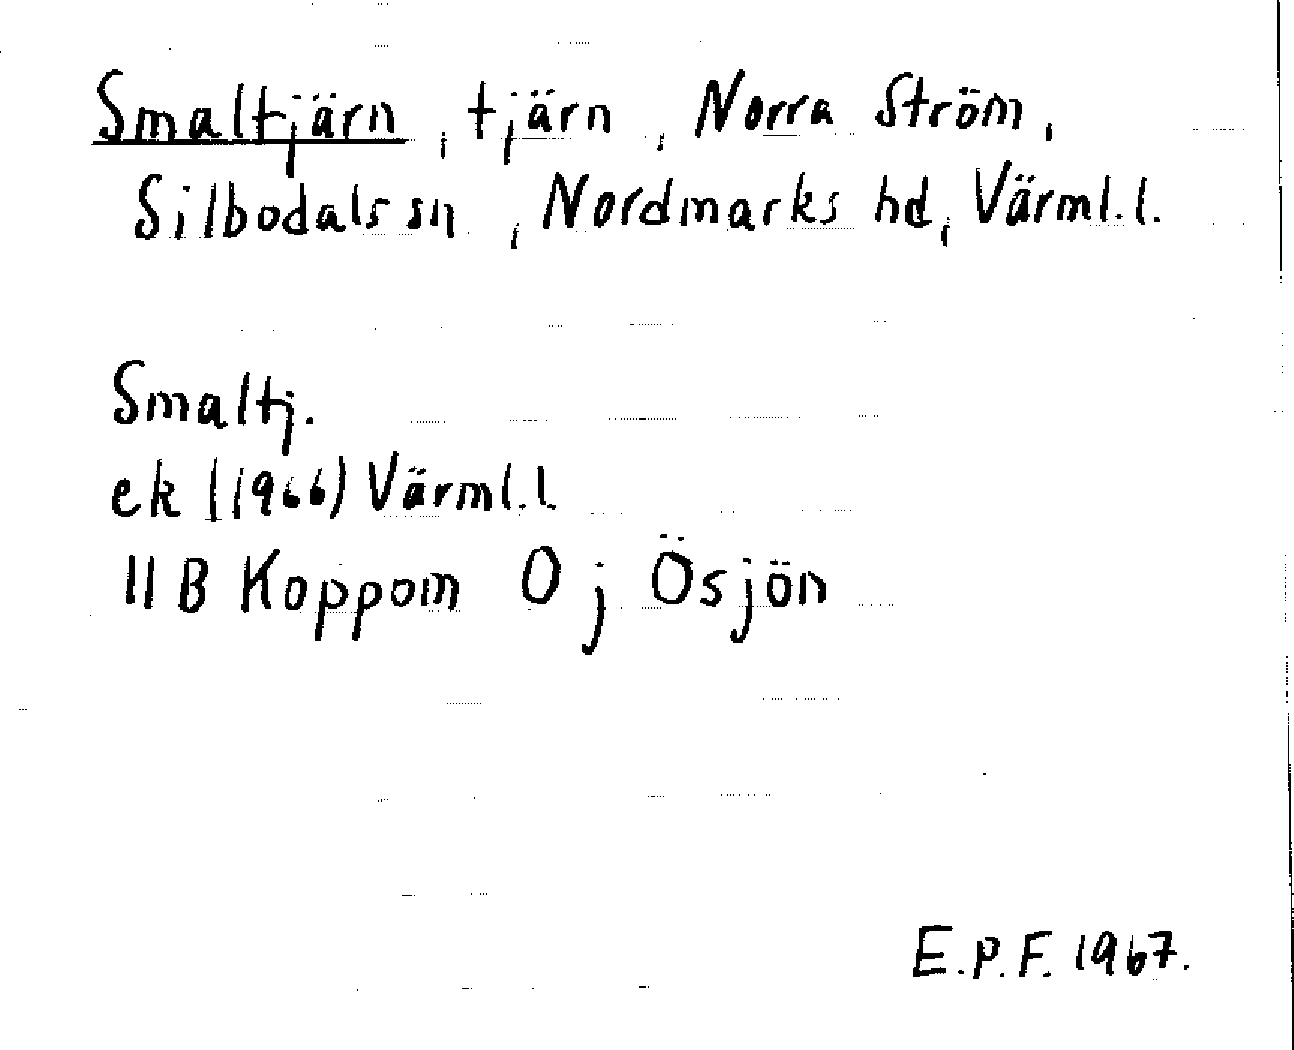 Smaltjärn, tjärn, Norra Ström,
Silbodals sn, Nordmarks hd, Värml.l.
Smaltj.
ek (1966) Värml.l.
11 B Koppom O j Ösjön
E.P.F. 1967.